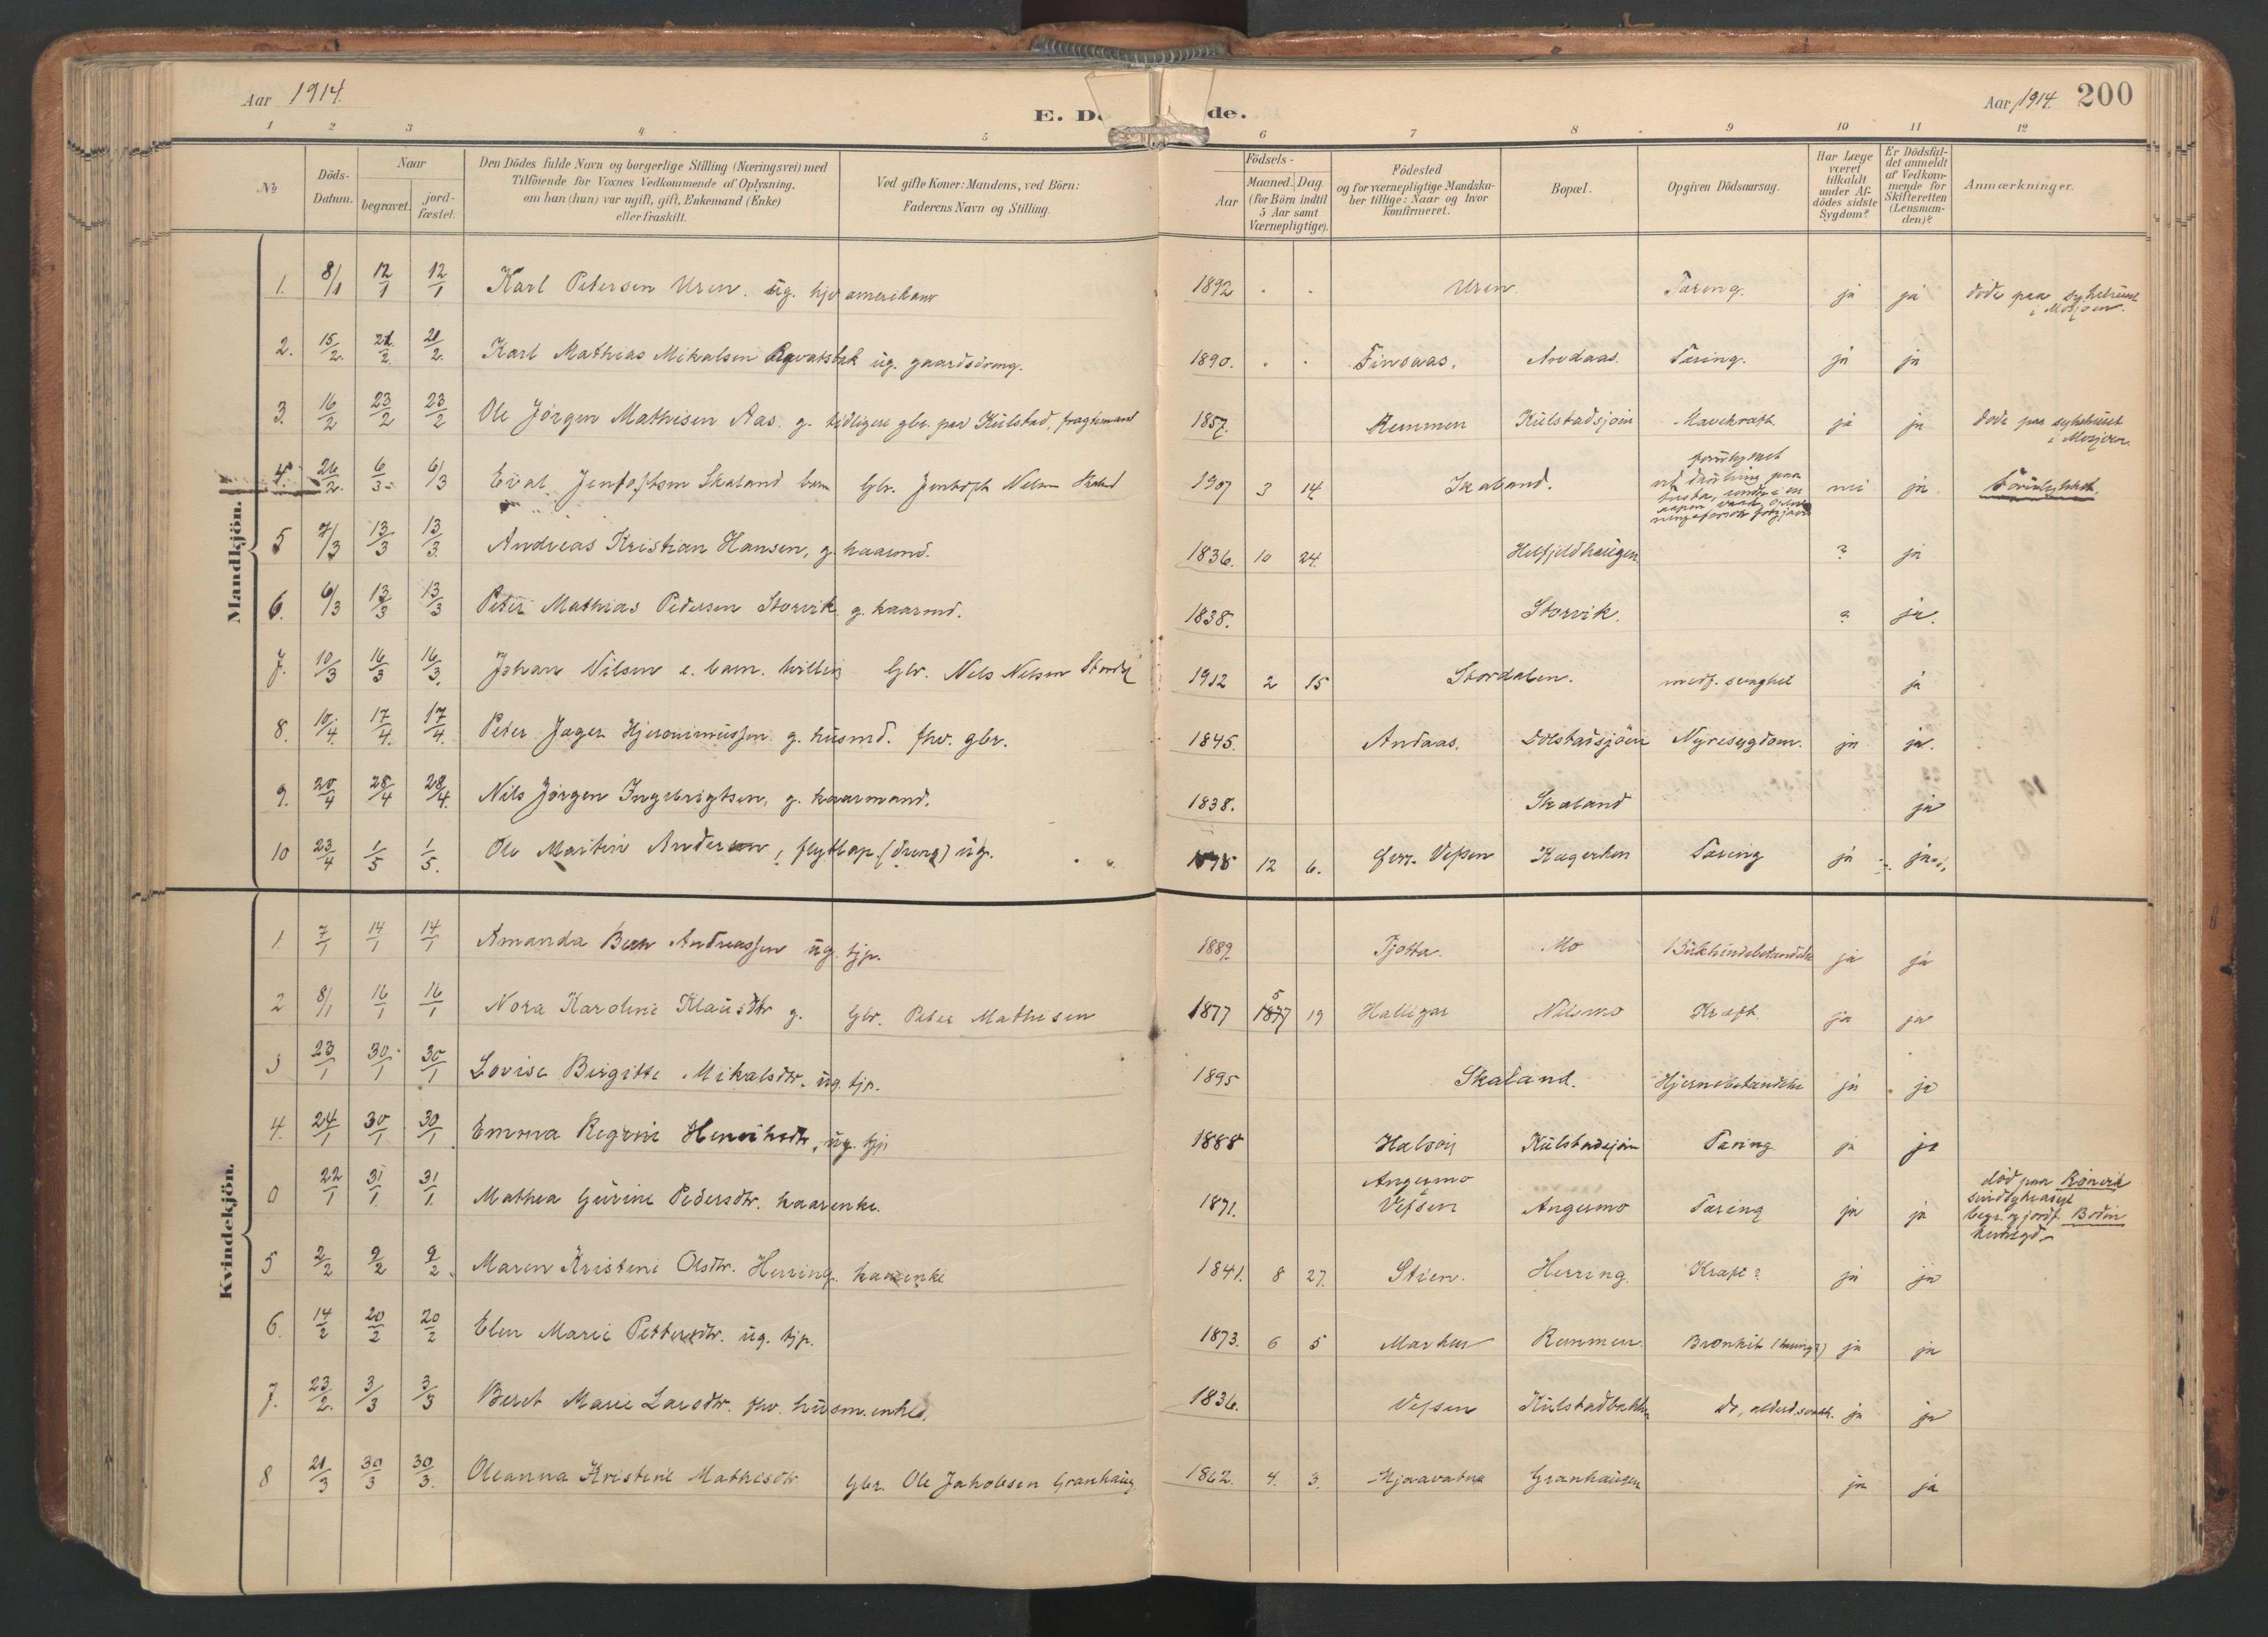 Aar 1914.
E. Dø de.
Aar 1914. 200
1 2 3 4 5 6 7 8 9 10 11 12
No
Döds-Datum.
Naar
begravet. jord-fæstet.
Den Dödes fulde Navn og borgerlige Stilling (Næringsvei) med
Tilföiende for Voxnes Vedkommende af Oplysning,
om han (hun) var ugift, gift, Enkemand (Enke)
eller fraskilt.
Ved gifte Koner: Mandens, ved Börn:
Faderens Navn og Stilling.
Födsels-
Aar
Maaned. Dag.
(for Börn indtil
5 Aar samt
Værnepligtige).
Födested
og for værnepligtige Mandska-
ber tillige: Naar og hvor
konfirmeret.
Bopæl.
Opgiven Dödsaarsag.
Har Læge
været
tilkaldt
under Af-
dödes sidste
Sygdom?
Er Dödsfal-
det anmeldt
af Vedkom-
mende for
Skifteretten
(Lensman-
den)?
Anmærkninger.
Mandkjön.
1. 8/1 12/1 12/1 Karl Petersen Uren. ug. hj. amerikaner 1892 Uren Tæring. ja ja døde paa sykehuset i Mosjøen.
2. 15/2 21/2 21/2 Karl Mathias Mikalsen ug. gaardsdreng. 1890. Finsaas. Andaas. Tæring. ja ja
3. 16/2 23/2 23/2 Ole Jørgen Mathisen Aas. g. tidligere gbr. paa Kulstad, fragtemand 1857. Remmen Kulstadsjøen Mavekræft. ja ja døde paa sykehuset i Mosjøen.
4. 26/2 6/3 6/3 Eval Jentoftsen Skaland barn Gbr. Jentoft Nilsen Skaland 1907 3 14 Skaland. forulykket ved drukning paa nei ja Forulykket.
5 7/3 13/3 13/3 Andreas Kristian Hansen, g. kaarmd. 1836. 10 24. Helfjeldhaugen. ? ja
6. 6/3 13/3 13/3 Peter Mathias Pedersen Storvik g. kaarmd. 1838. Storvik. ? ja.
7. 10/3 16/3 16/3 Johan Nilsen e. barn. tvilling Gbr. Nils Nilsen Stordal 1912 2 15 Stordalen. medf. svaghet ja
8. 10/4. 17/4. 17/4. Peter Jæger Hjeronimussen g. husmd. fhv. gbr. 1845. Andaas. Dolstadsjøen Nyresygdom. ja ja.
9. 20/4 28/4 28/4 Nils Jørgen Ingebrigtsen, g. kaarmand. 1838. Skaland ja
10 23/4 1/5 1/5. Ole Martin Andersen, flytlap. (dreng) ug. 1898 12 6. Vefsen Tæring ja ja
Kvindekjön.
1. 7/1 14/1 14/1 Amanda Bern Andreassen ug. tjp. 1889. Tjøtta. Mo Bukhindebetændelse ja ja
2 8/1 16/1 16/1 Nora Karoline Klausdtr g. Gbr. Peter Mathisen 1877 5 1877 19 Nilsmo Kræft. ja ja
3 23/1 30/1 30/1 Lovise Birgitte Mikalsdtr. ug. tjp. 1895 Skaland. Hjernebetændelse ja ja
4. 24/1 30/1 30/1 Emma Regine Henrikdtr, ug. tjp 1888 Halsøy Kulstadsjøen Tæring ja ja
0 22/1 31/1 31/1. Mathea Gurine Pedersdtr. kaarenke. 1871. Angermo i Vefsen Angermo Tæring ja ja død paa Rønvik sindsykeasyl begr. og jordf. Bodin kirkegd.
5 2/2 9/2 9/2. Maren Kristine Olsdtr. Herring. kaarenke 1841. 8 27. Stien. Herring. Kræft? ja ja
6. 14/2 20/2 20/2 Elen Marie Pettersdtr. ug. tjp. 1873. 6 5 Marken Remmen. Bronkit (tæring?) ja ja
7. 23/2. 3/3 3/3 Beret Marie Larsdtr. fhv. husm. enke. 1836. Vefsen Kulstadbakken do, alderd.svakh. ja ja
8 21/3 30/3 30/3. Oleanna Kristine Mathisdtr Gbr. Ole Jakobsen Granhaug 1862. 4. 3. Mjaavatna Granhaugen ja ja